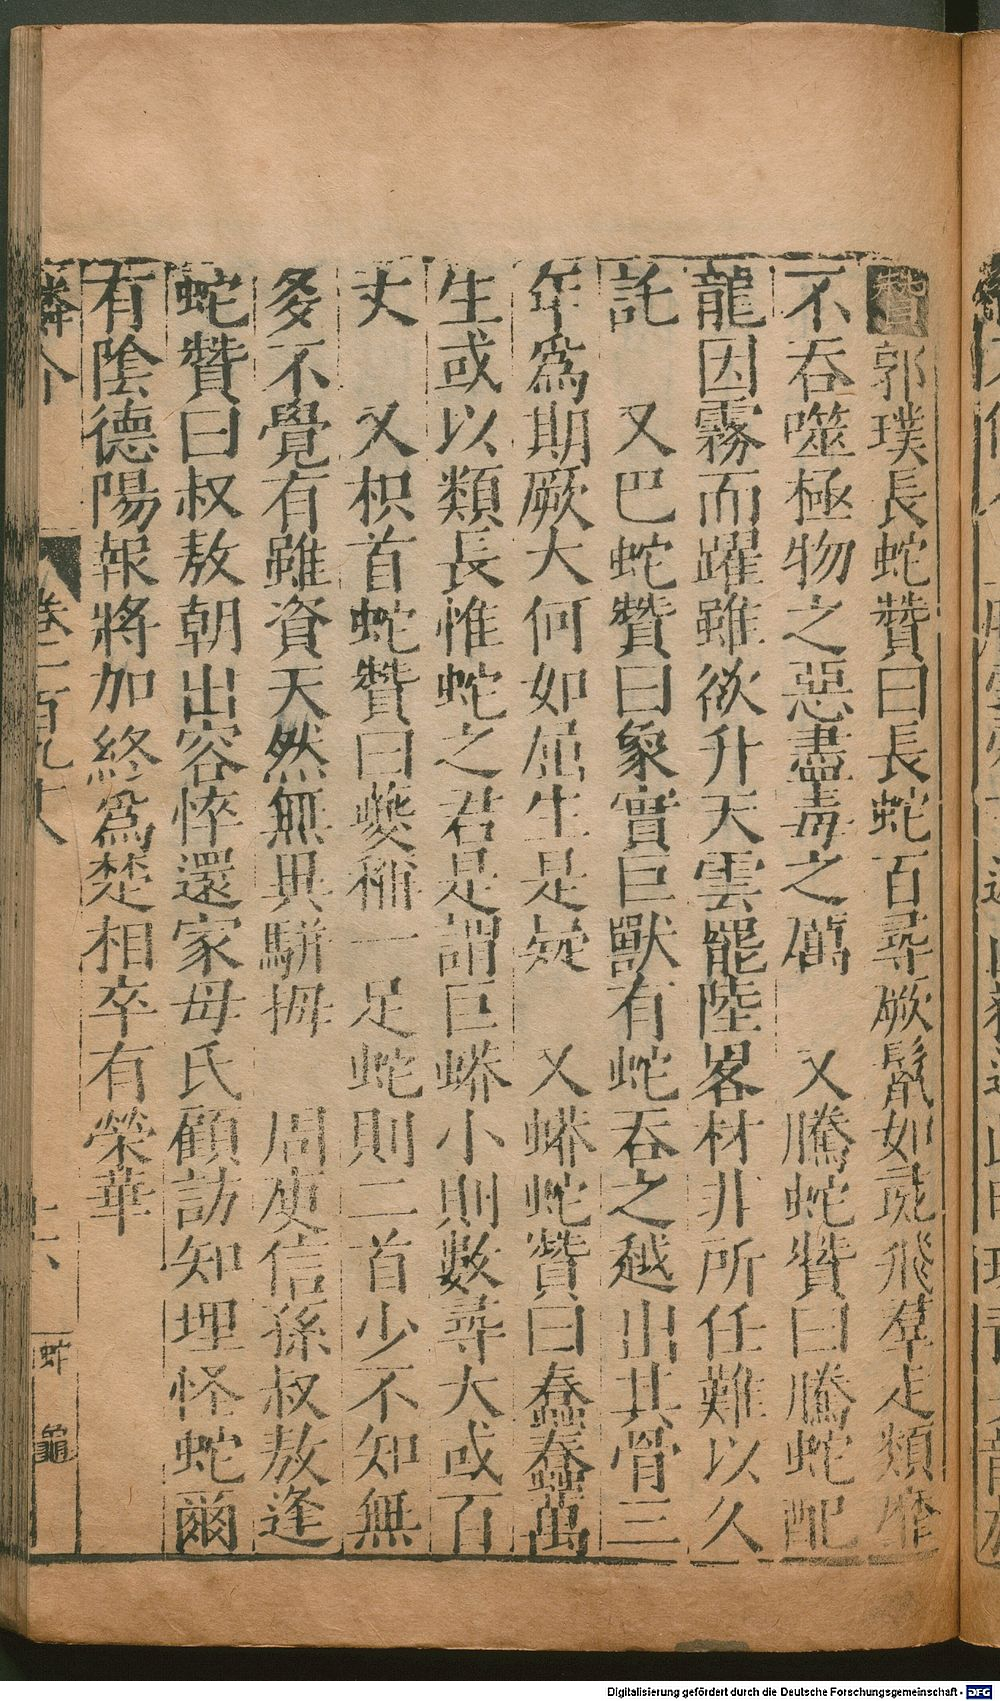 贊郭璞長蛇贊曰長蛇百尋厥鬣如彘飛羣走類靡
不吞噬極物之惡盡毒之厲　又騰蛇贊曰騰蛇配
龍因霧而躍雖欲升天雲罷陸畧材非所任難以久
託　又巴蛇贊曰象實巨獸有蛇吞之越出其骨三
年爲期厥大何如屈生是疑　又蟒蛇贊曰蠢蠢萬
生或以類長惟蛇之君是謂巨蟒小則數尋大或百
丈　又枳首蛇贊曰夔稱一足蛇則二首少不知無
多不覺有雖資天然無異駢拇　周庾信孫叔敖逢
蛇贊曰叔敖朝出容悴還家母氏顧訪知埋怪蛇爾
有陰德陽報將加終爲楚相卒有榮華
鱗介　卷一百九十八　十六　蛇　龜
Digitalisierung gefördert durch die Deutsche Forschungsgemeinschaft - DFG